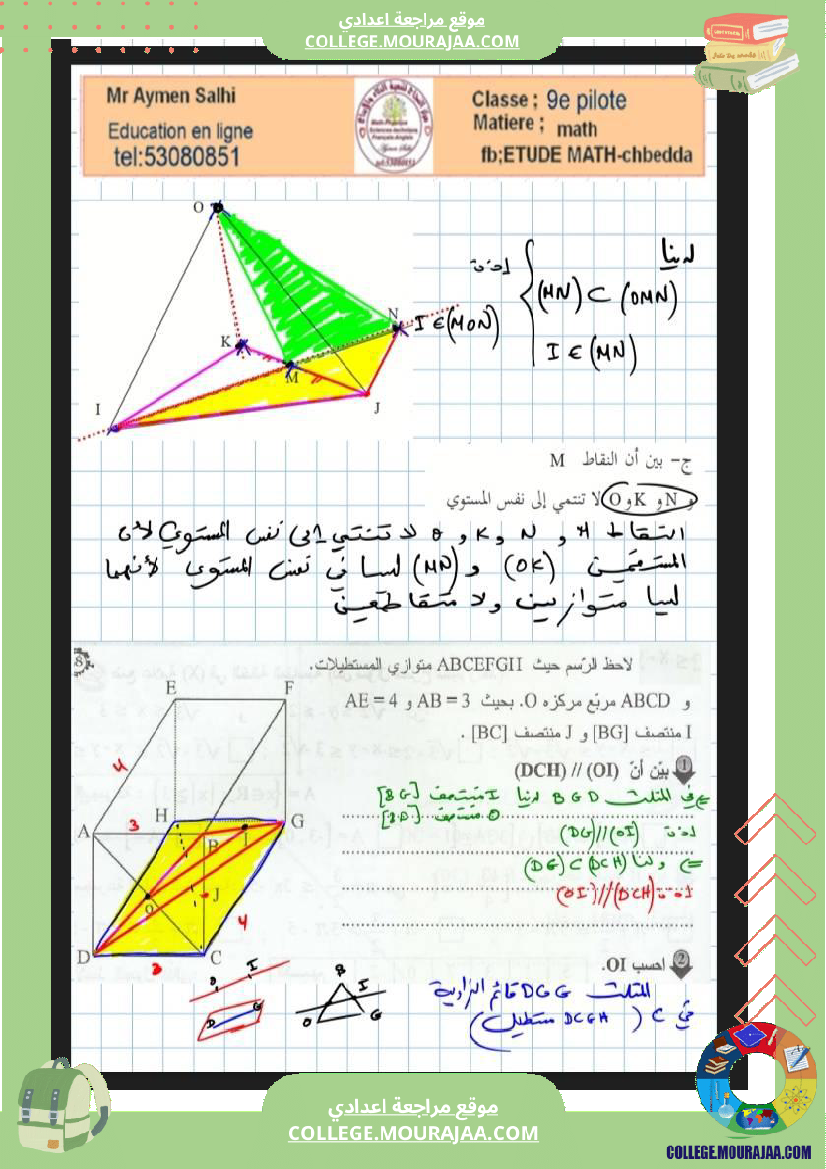 موقع مراجعة اعدادي
COLLEGE.MOURAJAA.COM
Mr Aymen Salhi
Education en ligne
tel:53080851
Classe ; 9e pilote
Matiere ; math
fb;ETUDE MATH-chbedda
لدينا
(MN) ⊂ (OMN)
I ∈ (MN)
إذن
I ∈ (MON)
O
N
K
M
I
J
ج- بين أن النقاط M
و N و K و O لا تنتمي إلى نفس المستوي
النقاط M و N و K و O لا تنتمي إلى نفس المستوي لأن
المستقيمين (OK) و (MN) ليسا في نفس المستوى لأنهما
ليسا متوازيين ولا متقاطعين
8
لاحظ الرّسم حيث ABCEFGH متوازي المستطيلات.
و ABCD مربّع مركزه O. بحيث AB = 3 و AE = 4
I منتصف [BG] و J منتصف [BC] .
1 بيّن أنّ (OI) // (DCH)
في المثلث BGD لدينا I منتصف [BG]
O منتصف [BD]
إذن (OI)//(DG)
ولنا (DG) ⊂ (DCH)
إذن (OI)//(DCH)
2 احسب OI.
المثلث DGG قائم الزاوية
في C (DCGH مستطيل)
E
F
4
H
G
A
3
B
I
O
J
4
D
C
3
I
D
G
B
I
O
G
موقع مراجعة اعدادي
COLLEGE.MOURAJAA.COM
COLLEGE.MOURAJAA.COM